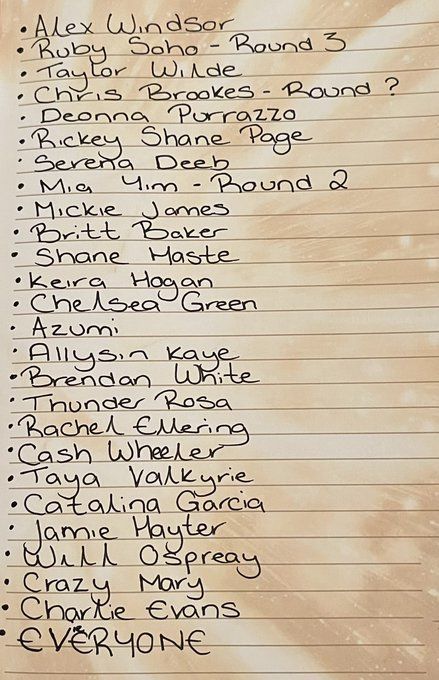 • Alex Windsor
• Ruby Soho - Round 3
• Taylor Wilde
• Chris Brookes - Round ?
• Deonna Purrazzo
• Rickey Shane Page
• Serena Deeb
• Mia Yim - Round 2
• Mickie James
• Britt Baker
• Shane Haste
• Keira Hogan
• Chelsea Green
• Azumi
• Allysin Kaye
• Brendan White
• Thunder Rosa
• Rachel Ellering
• Cash Wheeler
• Taya Valkyrie
• Catalina Garcia
• Jamie Hayter
• Will Ospreay
• Crazy Mary
• Charlie Evans
• EVERYONE